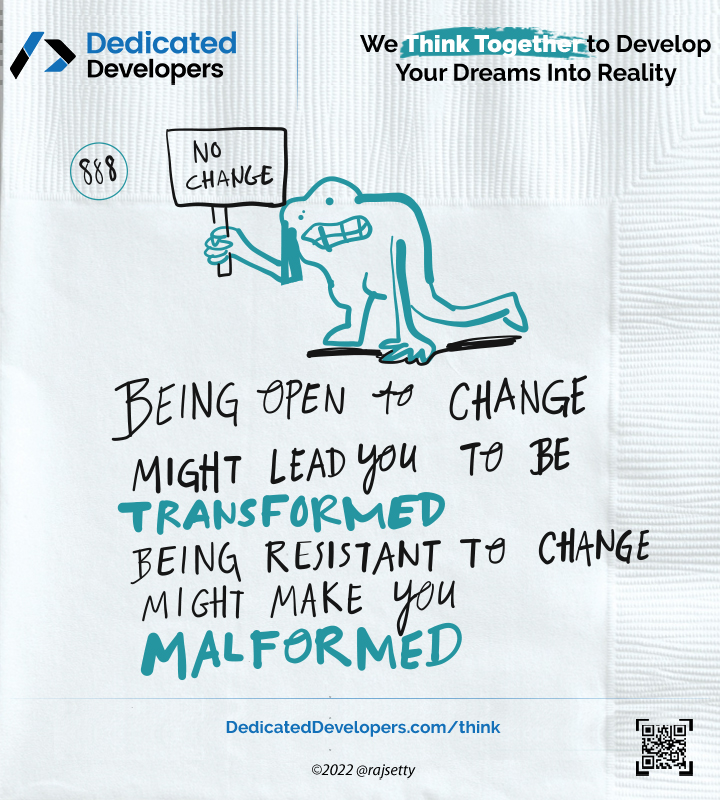 Dedicated
Developers
We Think Together to Develop
Your Dreams Into Reality
888
NO
CHANGE
BEING OPEN to CHANGE
MIGHT LEAD YOU TO BE
TRANSFORMED
BEING RESISTANT TO CHANGE
MIGHT MAKE YOU
MALFORMED
DedicatedDevelopers.com/think
©2022 @rajsetty